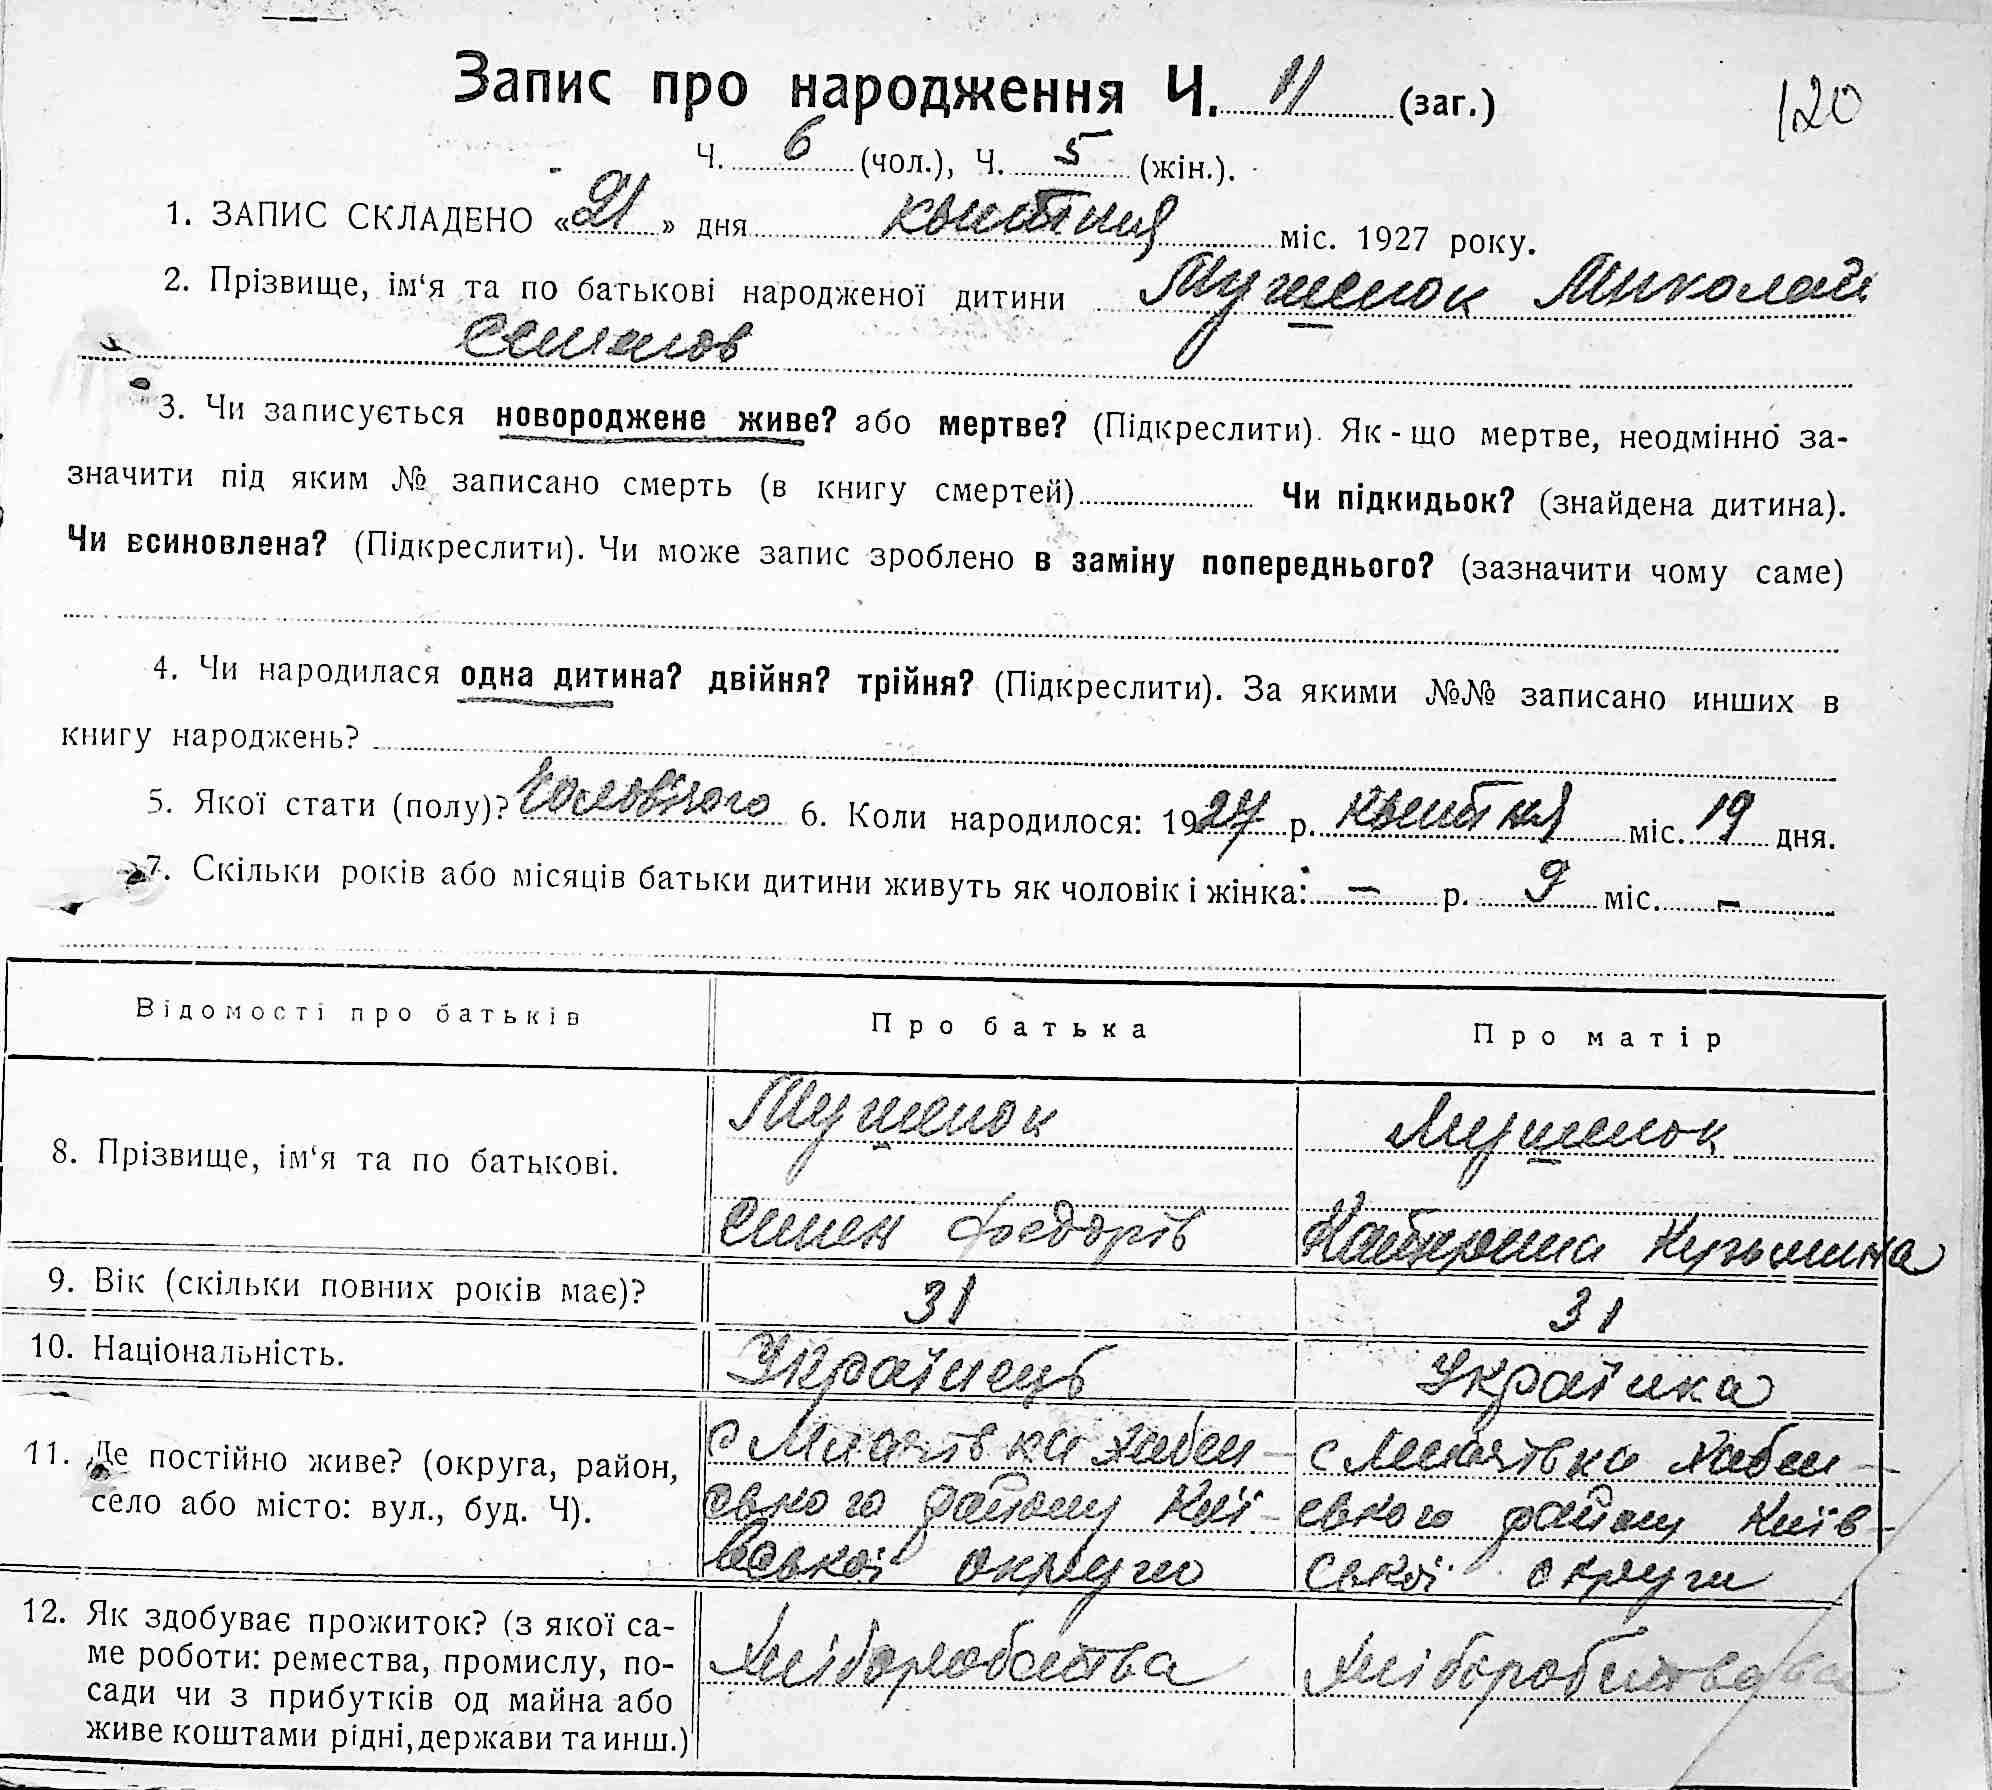 Запис про народження Ч. 11 (заг.)
120
Ч. 6 (чол.), Ч. 5 (жін.).
1. ЗАПИС СКЛАДЕНО «21» дня квітня міс. 1927 року.
2. Прізвище, ім‘я та по батькові народженої дитини Мушенок Миколай
Семенов
3. Чи записується новороджене живе? або мертве? (Підкреслити). Як-що мертве, неодмінно за-
значити під яким № записано смерть (в книгу смертей) Чи підкидьок? (знайдена дитина).
Чи всиновлена? (Підкреслити). Чи може запис зроблено в заміну попереднього? (зазначити чому саме)
4. Чи народилася одна дитина? двійня? трійня? (Підкреслити). За якими №№ записано инших в
книгу народжень?
5. Якої стати (полу)? Чоловічого 6. Коли народилося: 1927 р. квітня міс. 19 дня.
7. Скільки років або місяців батьки дитини живуть як чоловік і жінка: — р. 9 міс. —
Відомості про батьків Про батька Про матір
8. Прізвище, ім‘я та по батькові.
Мушенок
Семен Федорів
Мушенок
Кузьмина
9. Вік (скільки повних років має)? 31 31
10. Національність. Українець Українка
11. Де постійно живе? (округа, район,
село або місто: вул., буд. Ч).
с Млачівка Хабен-
ського району Киї-
вської округи
с Млачівка Хабен-
ського району Київ-
ської округи
12. Як здобуває прожиток? (з якої са-
ме роботи: ремества, промислу, по-
сади чи з прибутків од майна або
живе коштами рідні, держави та инш.)
Хліборобства
Хліборобства